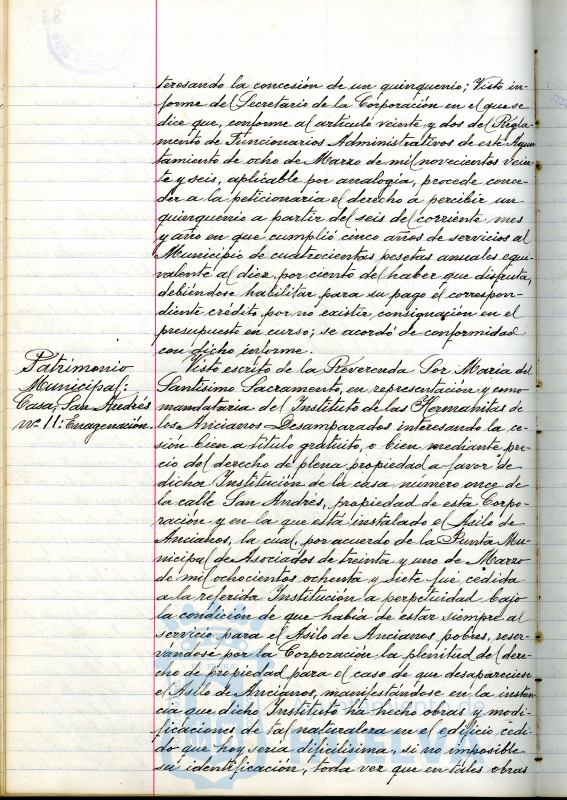 teresando la concesión de un quinquenio; Visto in-
forme del Secretario de la Corporación en el que se
dice que, conforme al artículo veinte y dos del Regla-
mento de Funcionarios Administrativos de este Ayun
tamiento de ocho de Marzo de mil novecientos vein-
te y seis, aplicable por analogía, procede conce-
der a la peticionaria el derecho a percibir un
quinquenio a partir del seis del corriente mes
y año en que cumplió cinco años de servicios al
Municipio de cuatrocientas pesetas anuales equi-
valente al diez por ciento del haber que disfruta,
debiéndose habilitar para su pago el correspon-
diente crédito por no existir consignación en el
presupuesto en curso; se acordó de conformidad
con dicho informe.
Patrimonio
Municipal:
Casa San Andrés
nº 11: Enagenación.
Visto escrito de la Reverenda Sor María del
Santísimo Sacramento, en representación y como
mandataria del Instituto de las Hermanitas de
los Ancianos Desamparados interesando la ce-
sión bien a título gratuito, o bien mediante pre-
cio del derecho de plena propiedad a favor de
dicha Institución de la casa número once de
la calle San Andrés, propiedad de esta Corpo-
ración y en la que está instalado el Asilo de
Ancianos, la cual, por acuerdo de la Junta Mu-
nicipal de Asociados de treinta y uno de Marzo
de mil ochocientos ochenta y siete fué cedida
a la referida Institución a perpetuidad bajo
la condición de que había de estar siempre al
servicio para el Asilo de Ancianos pobres, reser-
vándose por la Corporación la plenitud del dere-
cho de propiedad para el caso de que desapareciese
el Asilo de Ancianos, manifestándose en la instan
cia que dicho Instituto ha hecho obras y modi-
ficaciones de tal naturaleza en el edificio cedi-
do que hoy sería dificilísima, si no imposible
su identificación, toda vez que en tales obras